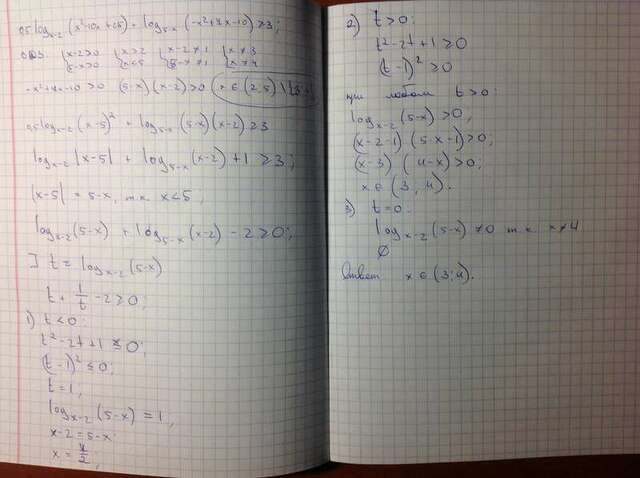 0,5 log_{x-2} (x²-10x+25) + log_{5-x} (-x²+7x-10) ≥ 3;
ОДЗ: { x-2>0 5-x>0 { x>2 x<5 { x-2≠1 5-x≠1 { x≠3 x≠4
-x²+7x-10>0 (5-x)(x-2)>0
0,5 log_{x-2} (x-5)² + log_{5-x} (5-x)(x-2) ≥ 3
log_{x-2} |x-5| + log_{5-x} (x-2) + 1 ≥ 3;
|x-5| = 5-x, т.к. x<5;
log_{x-2} (5-x) + log_{5-x} (x-2) - 2 ≥ 0;
] t = log_{x-2} (5-x)
t + 1/t - 2 ≥ 0;
1) t<0:
t²-2t+1 ≤ 0;
(t-1)² ≤ 0;
t=1;
log_{x-2} (5-x) = 1;
x-2 = 5-x;
x = 7/2;
2) t>0:
t²-2t+1 ≥ 0
(t-1)² ≥ 0
при любом t>0:
log_{x-2} (5-x) > 0;
(x-2-1)(5-x-1) > 0;
(x-3)(4-x) > 0;
x ∈ (3, 4).
3) t=0:
log_{x-2} (5-x) ≠ 0 т.к. x≠4
∅
Ответ x ∈ (3; 4).